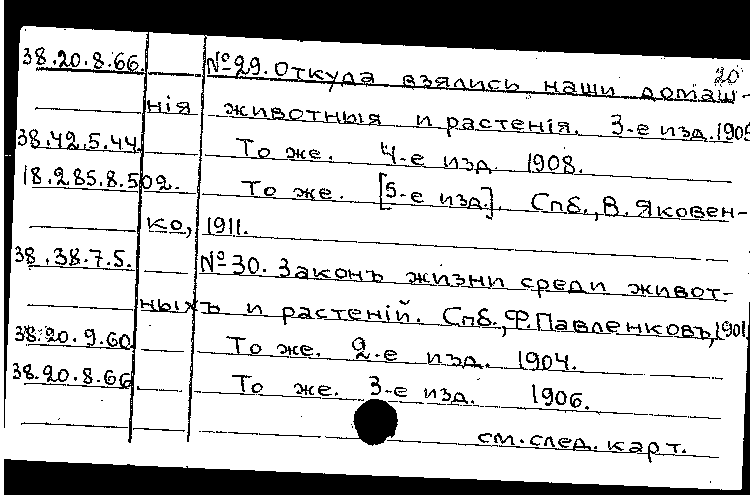 20
38.20.8.66. №29. Откуда взялись наши домаш-
нія животныя и растенія. 3-е изд. 1905
38.42.5.44. То же. 4-е изд. 1908.
18.285.8.502. То же. [5-е изд.]. Спб., В. Яковен-
ко, 1911.
38.38.7.5. №30. Законъ жизни среди живот-
ныхъ и растеній. Спб., Ф. Павленковъ, 1901
38.20.9.60. То же. 2-е изд. 1904.
38.20.8.66. То же. 3-е изд. 1906.
см. след. карт.